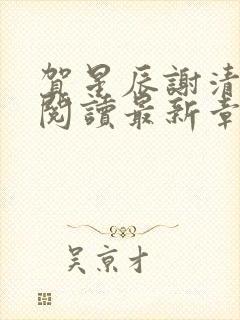 賀星辰謝清
閱讀最新章
吳京才